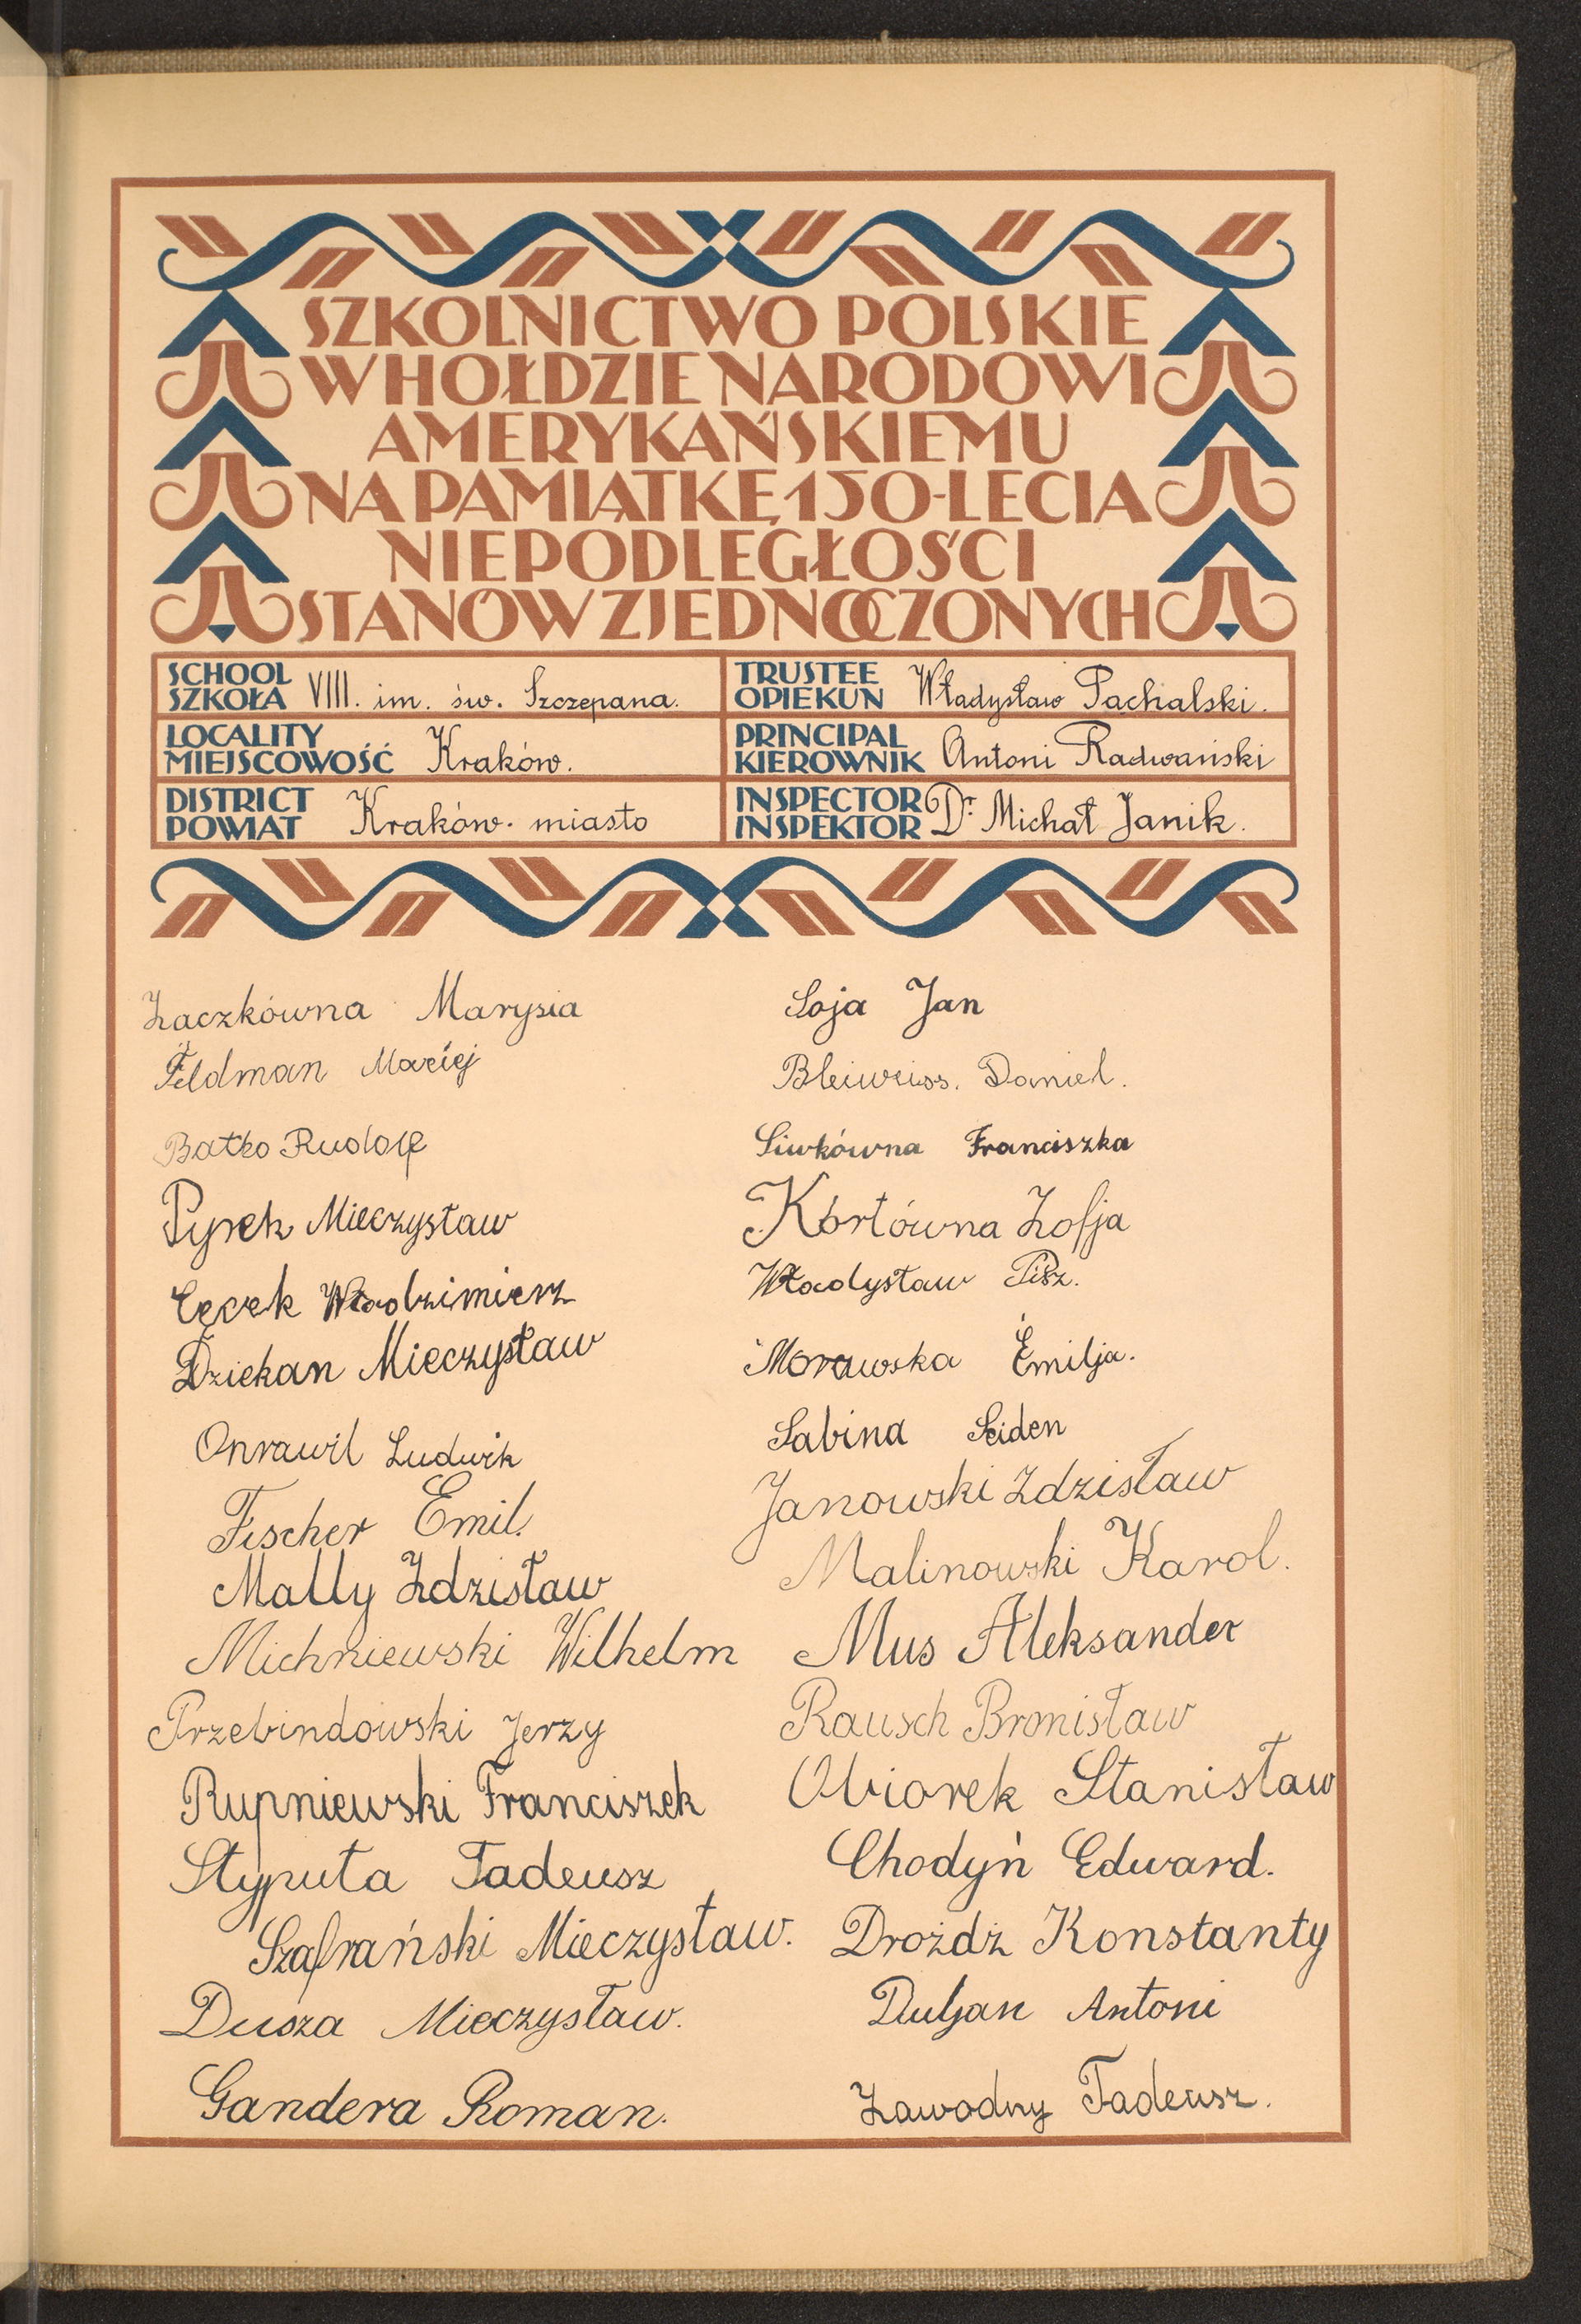 SZKOLNICTWO POLSKIE
W HOŁDZIE NARODOWI
AMERYKAŃSKIEMU
NA PAMIĄTKĘ 150-LECIA
NIEPODLEGŁOŚCI
STANÓW ZJEDNOCZONYCH
SCHOOL
SZKOŁA VIII. im. św. Szczepana.
TRUSTEE
OPIEKUN Władysław Pachalski.
LOCALITY
MIEJSCOWOŚĆ Kraków.
PRINCIPAL
KIEROWNIK Antoni Radwański
DISTRICT
POWIAT Kraków-miasto
INSPECTOR
INSPEKTOR Dr. Michał Janik.
Żaczkówna Marysia
Feldman Maciej
Batko Rudolf
Pyrek Mieczysław
Cęcek Włodzimierz
Dziekan Mieczysław
Onrawil Ludwik
Fischer Emil.
Mally Zdzisław
Michniewski Wilhelm
Przebindowski Jerzy
Rupniewski Franciszek
Stypuła Tadeusz
Szafrański Mieczysław.
Dusza Mieczysław.
Gandera Roman.
Soja Jan
Bleiweiss. Daniel.
Siwkówna Franciszka
Kortówna Zofja
Władysław Pisz.
Morawska Emilja.
Sabina Seiden
Janowski Zdzisław
Malinowski Karol.
Mus Aleksander
Rausch Bronisław
Obiorek Stanisław
Chodyń Edward.
Drożdż Konstanty
Duljan Antoni
Zawodny Tadeusz.